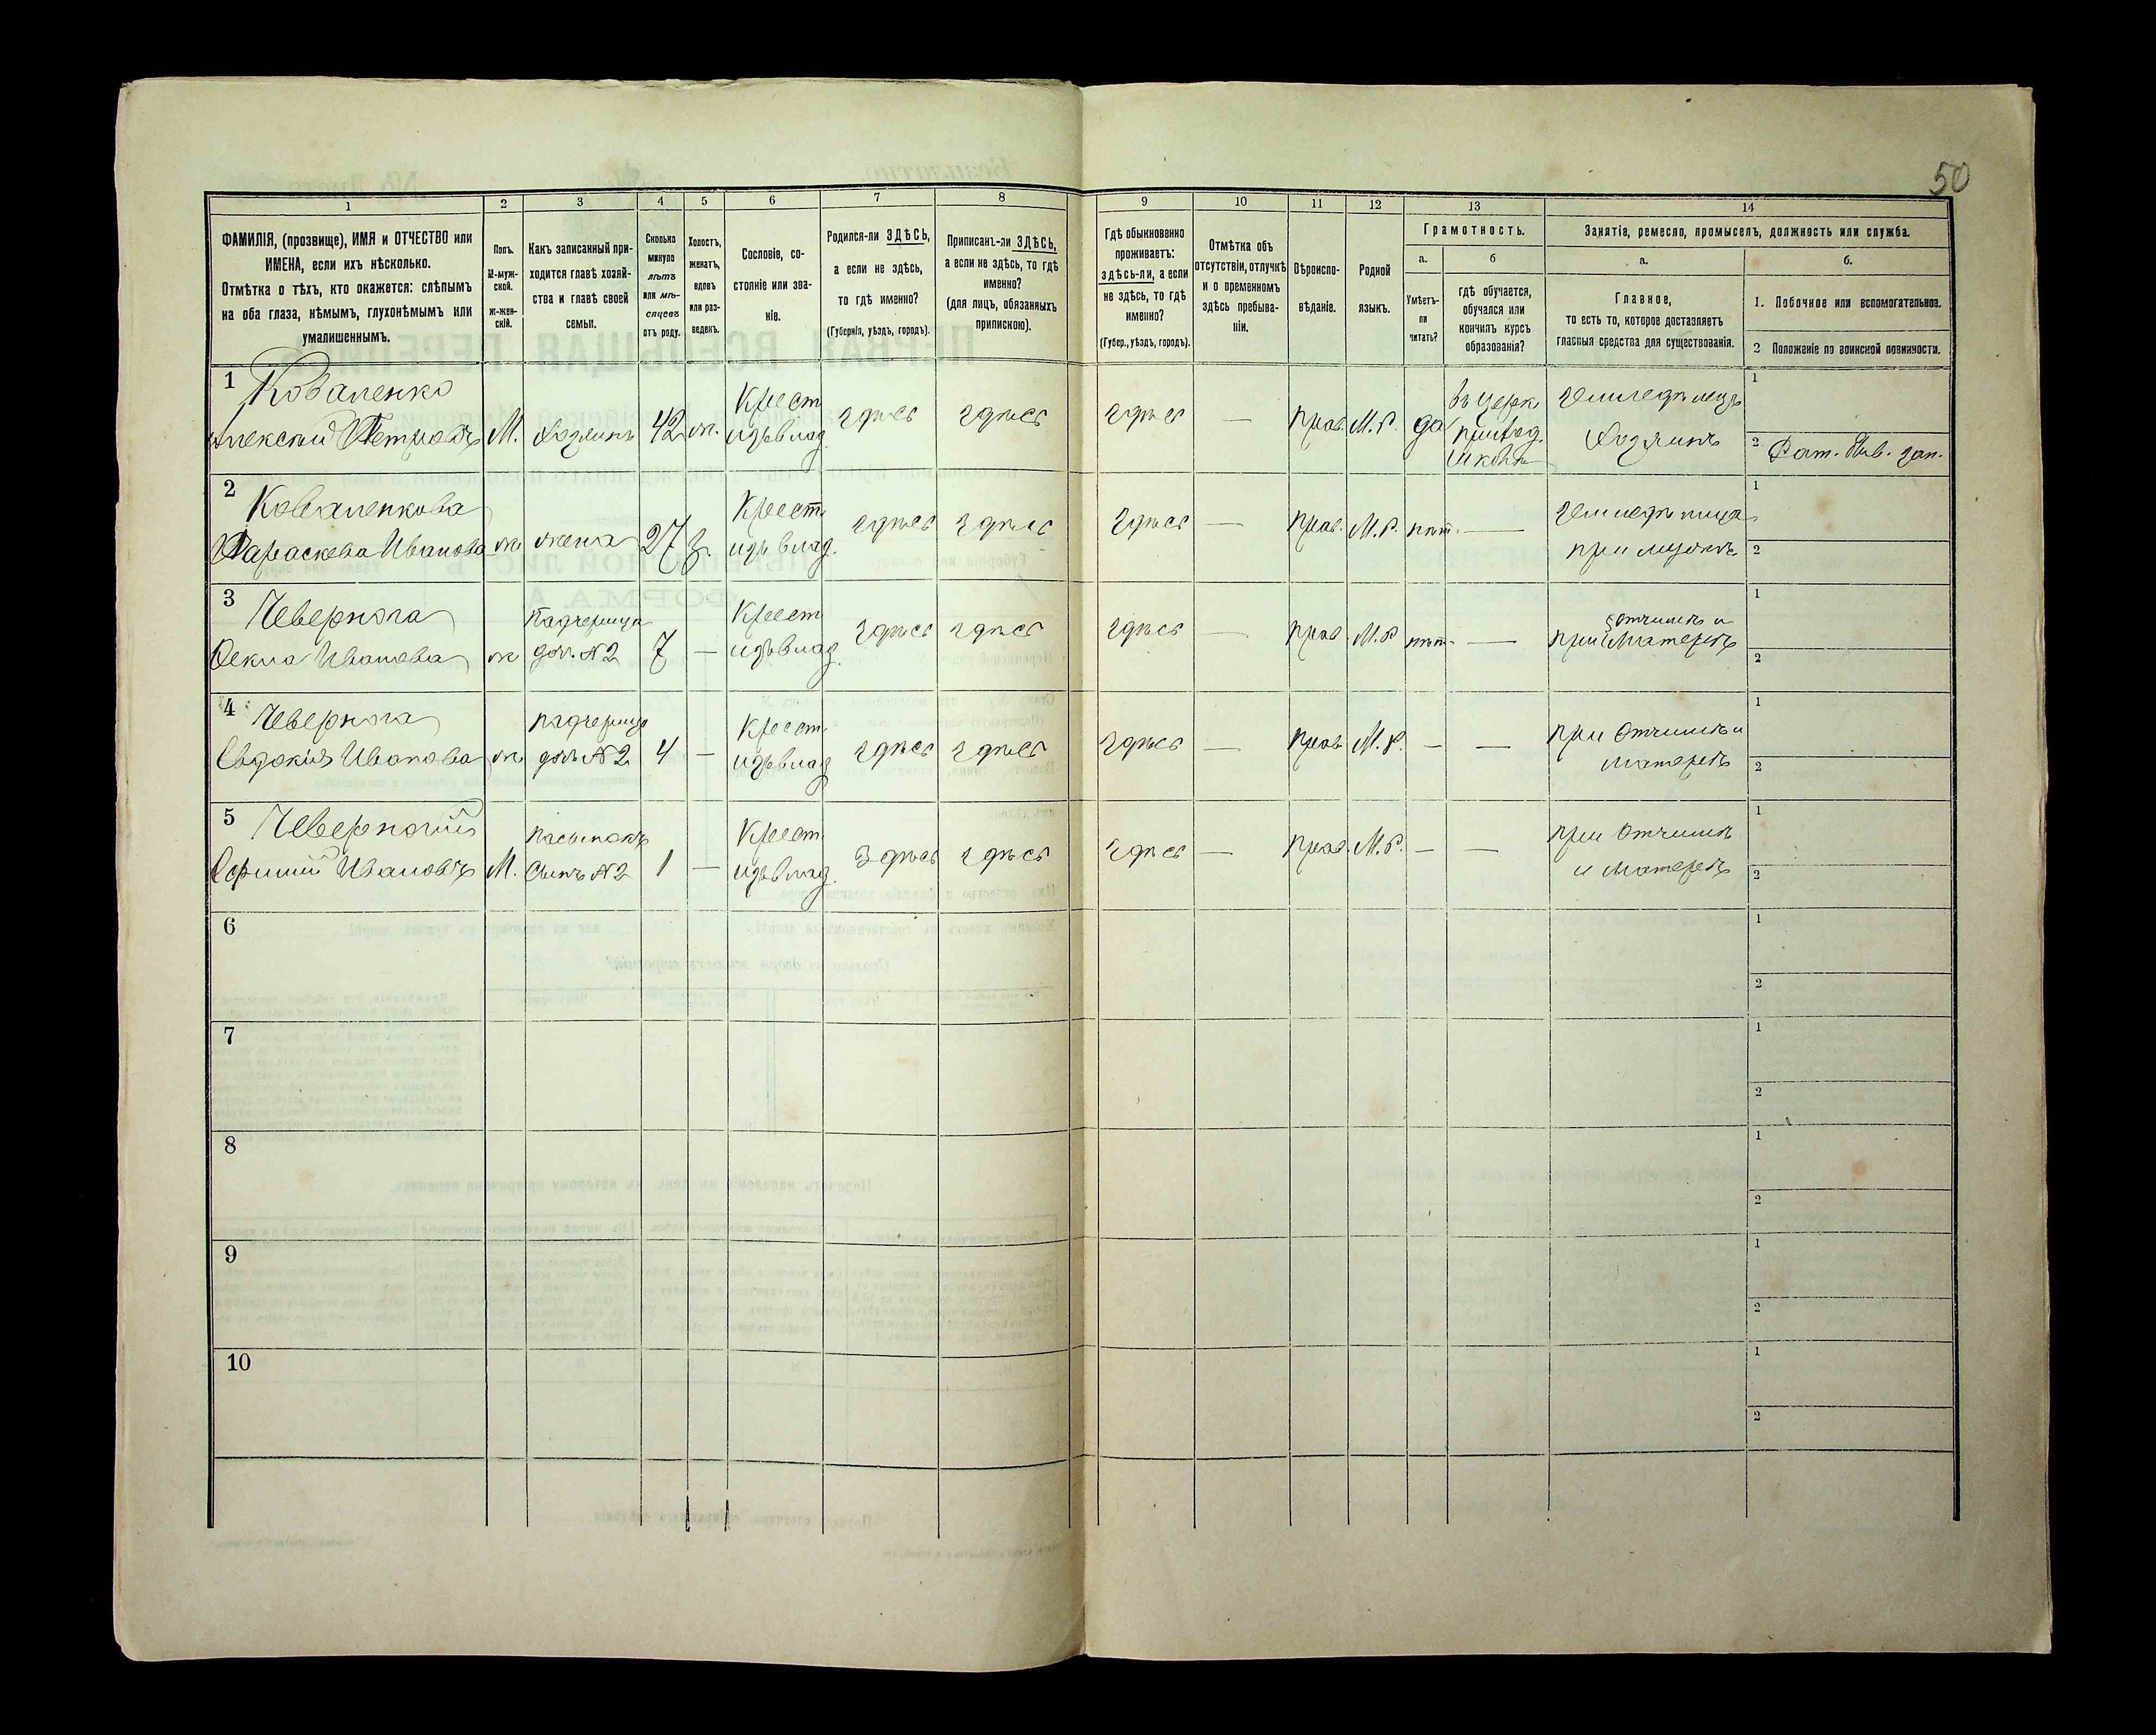 50
1 2 3 4 5 6 7 8 9 10 11 12 13 14
ФАМИЛІЯ, (прозвище), ИМЯ и ОТЧЕСТВО или
ИМЕНА, если ихъ нѣсколько.
Отмѣтка о тѣхъ, кто окажется: слѣпымъ
на оба глаза, нѣмымъ, глухонѣмымъ или
умалишеннымъ.
Полъ.
М-муж-
ской.
Ж-жен-
скій.
Какъ записанный при-
ходится главѣ хозяй-
ства и главѣ своей
семьи.
Сколько
минуло
лѣтъ
или мѣ-
сяцевъ
отъ роду.
Холостъ,
женатъ,
вдовъ
или раз-
веденъ.
Сословіе, со-
стояніе или зва-
ніе.
Родился-ли ЗДѢСЬ,
а если не здѣсь,
то гдѣ именно?
(Губернія, уѣздъ, городъ).
Приписанъ-ли ЗДѢСЬ,
а если не здѣсь, то гдѣ
именно?
(для лицъ, обязанныхъ
припискою).
Гдѣ обыкновенно
проживаетъ:
здѣсь-ли, а если
не здѣсь, то гдѣ
именно?
(Губер., уѣздъ, городъ).
Отмѣтка объ
отсутствіи, отлучкѣ
и о временномъ
здѣсь пребыва-
ніи.
Вѣроиспо-
вѣданіе.
Родной
языкъ.
Грамотность.
а.
Умѣетъ-
ли
читать?
б
гдѣ обучается,
обучался или
кончилъ курсъ
образованія?
Занятіе, ремесло, промыселъ, должность или служба.
а.
Главное,
то есть то, которое доставляетъ
главныя средства для существованія.
б.
1. Побочное или вспомогательное.
2 Положеніе по воинской повинности.
1 Коваленко Крест въ церк земледѣлецъ 1
Алексѣй Петровъ М. хозяинъ 42 ж. изъ влад. здѣсь здѣсь здѣсь — прав. М.Р. да приход. хозяинъ
школѣ 2 Рат.
2 Коваленкова Крест. земледѣлица 1
Параскева Иванова ж жена 27 з. изъ влад. здѣсь здѣсь здѣсь — прав. М.Р. нѣт. — при мужѣ 2
3 Чевернога падчерица Крест отчимѣ и 1
Фекла Иванова ж доч. №2 7 — изъ влад. здѣсь здѣсь здѣсь — прав. М.Р нѣт. — при матерѣ 2
4 Чевернога падчерица Крест. при отчимѣ и 1
Евдокія Иванова ж дочь №2 4 — изъ влад здѣсь здѣсь здѣсь — прав М.Р. — — матерѣ 2
5 Чеверногій пасынокъ Крест. при отчимѣ 1
Ефимій Ивановъ М. сынъ №2 1 — изъ влад. здѣсь здѣсь здѣсь — прав. М.Р. — — и матерѣ 2
6 1
2
7 1
2
8 1
2
9 1
2
10 1
2